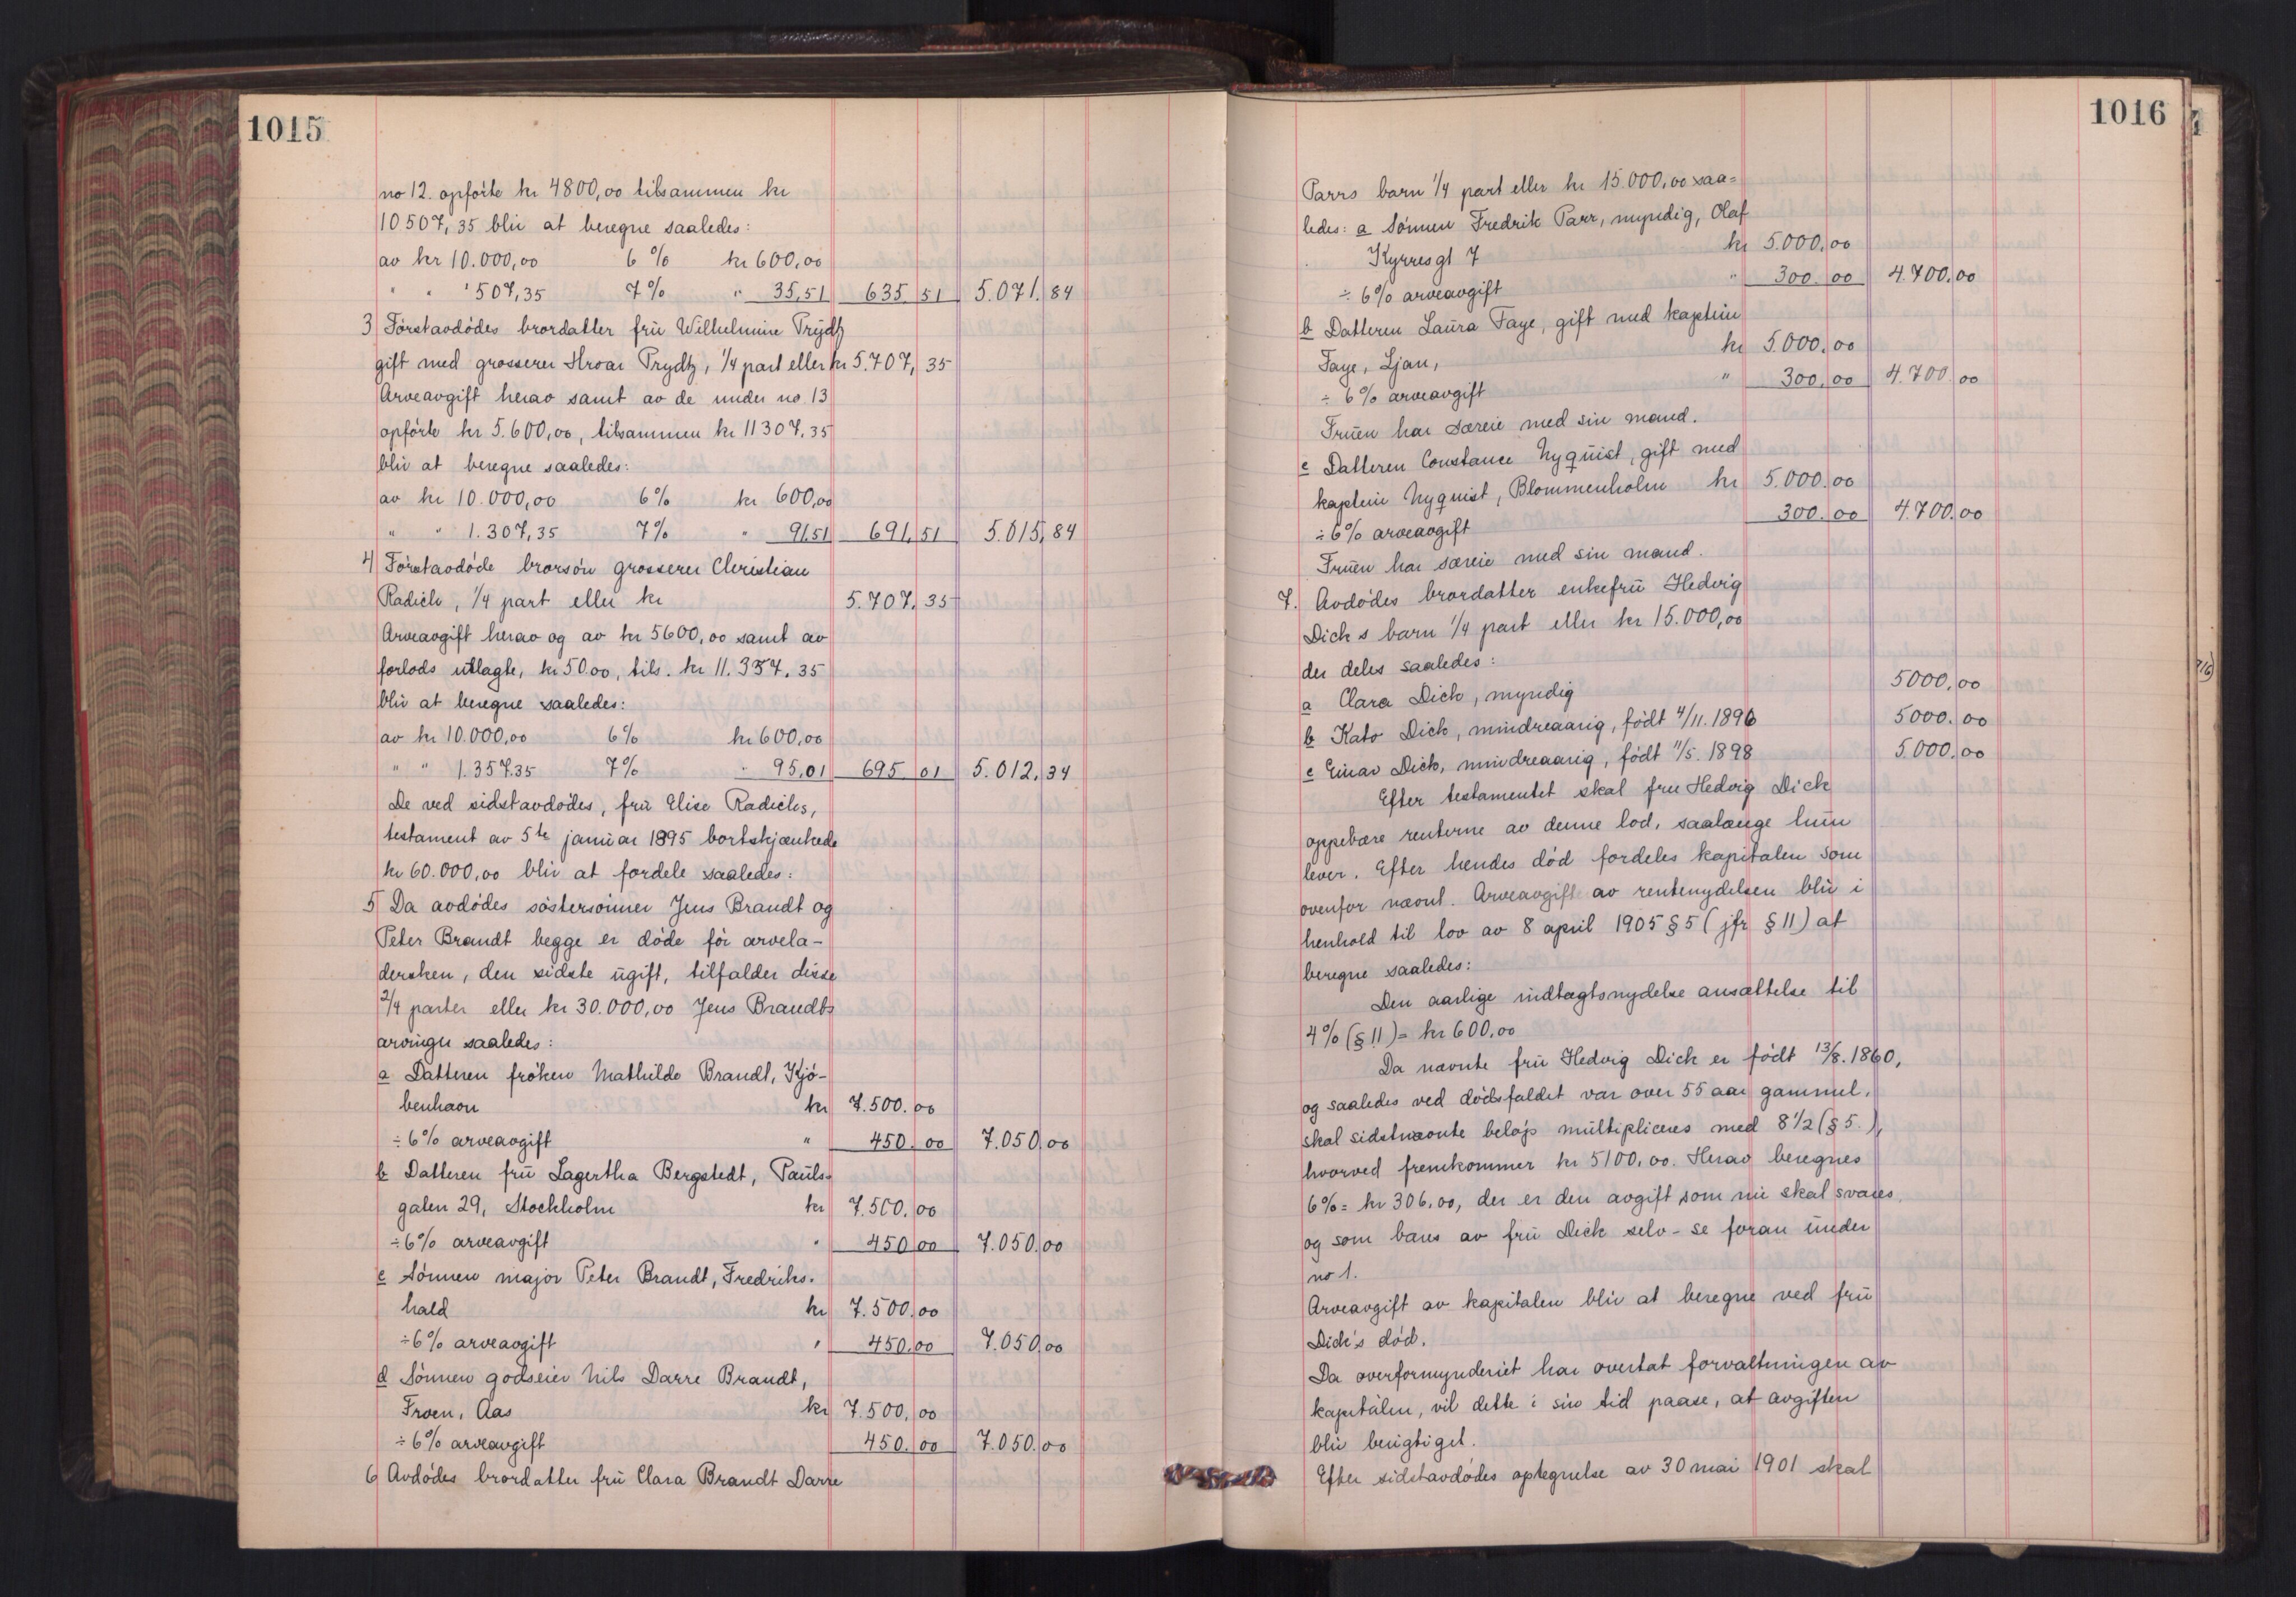 1015
no 12. opførte kr 4800,00 tilsammen kr
10507,35 blir at beregne saaledes:
av kr 10.000,00 6% kr 600,00
" " 507,35 7% " 35,51 635 51 5.071.84
3 Førstavdødes brordatter frū Wilhelmine Prydtz
gift med grosserer Hroar Prydtz, 1/4 part eller kr 5.707,35
Arveavgift herav samt av de under no 13
opførte kr 5.600,00, tilsammen kr 11307,35
blir at beregne saaledes:
av kr 10.000,00 6% kr 600,00
" " 1.307,35 7% " 91,51 691,51 5.015,84
4 Førstavdøde brorsøn grosserer Christian
Radich, 1/4 part eller kr 5.707,35
Arveavgift herav og av kr 5600,00 samt av
forlods utlagte, kr 50.00, tils. kr 11.357.35
blir at beregne saaledes:
av kr 10.000,00 6% kr 600,00
" " 1.357.35 7% " 95,01 695 01 5.012,34
De ved sidstavdødes, frū Elise Radichs,
testament av 5te janūar 1895 bortskjænkede
kr 60.000,00 blir at fordele saaledes:
5 Da avdødes søstersønner Jens Brandt og
Peter Brandt begge er døde før arvela-
dersken, den sidste ūgift, tilfalder disse
2/4 parter eller kr 30.000,00 Jens Brandts
arvinger saaledes:
a Datteren frøken Mathilde Brandt, Kjø-
benhavn kr 7.500.00
÷ 6% arveavgift " 450.00 7.050.00
b Datteren frū Lagertha Bergstedt, Paūls-
gaten 29, Stockholm kr 7.500.00
÷ 6% arveavgift " 450.00 7.050.00
c Sønnen major Peter Brandt, Fredriks-
hald kr 7.500.00
÷ 6% arveavgift " 450.00 7.050.00
d Sønnen godseier Nils Darre Brandt,
Froen, Aas kr 7.500,00
÷ 6% arveavgift 450.00 7.050.00
6 Avdødes brordatter frū Clara Brandt Darre
1016
Parrs barn 1/4 part eller kr 15.000,00 saa=
ledes: a Sønnen Fredrik Parr, myndig, Olaf
Kyrresgt 7 kr 5.000,00
÷ 6% arveavgift " 300.00 4.700.00
b Datteren Laūra Faye, gift med kaptein
Faye, Ljan, kr 5.000.00
÷ 6% arveavgift " 300,00 4.700.00
Frūen har særeie med sin mand.
c Datteren Constance Nyqūist, gift med
kaptein Nyquist, Blommenholm kr 5.000.00
÷ 6% arveavgift 300.00 4.700.00
Frūen har særeie med sin mand.
7. Avdødes brordatter enkefrū Hedvig
Dicks barn 1/4 part eller kr 15.000,00
der deles saaledes:
a Clara Dick, myndig 5000,00
b Kato Dick, mindreaarig, født 4/11.1896 5000.00
c Einar Dick, mindreaarig, født 11/5.1898 5.000,00
Efter testamentet skal fru Hedvig Dick
oppebære renterne av denne lod, saalænge hūn
lever. Efter hendes død fordeles kapitalen som
ovenfor nævnt. Arveavgift av rentenydelsen blir i
henhold til lov av 8 april 1905 § 5 (jfr § 11) at
beregne saaledes:
Den aarlige indtægtsnydelse ansættelse til
4% (§ 11) = kr 600,00
Da nævnte frū Hedvig Dick er født 13/8.1860,
og saaledes ved dødsfaldet var over 55 aar gammel,
skal sidstnævnte beløp mūltipliceres med 8 1/2 (§ 5.),
hvorved fremkommer kr 5100,00. Herav beregnes
6% = kr 306,00, der er den avgift som nū skal svares,
og som bæres av frū Dick selv - se foran ūnder
no 1.
Arveavgift av kapitalen blir at beregne ved frū
Dick's død.
Da overformynderiet har overtat forvaltningen av
kapitalen, vil dette i sin tid paase, at avgiften
blir berigtiget.
Efter sidstavdødes optegnelse av 30 mai 1901 skal